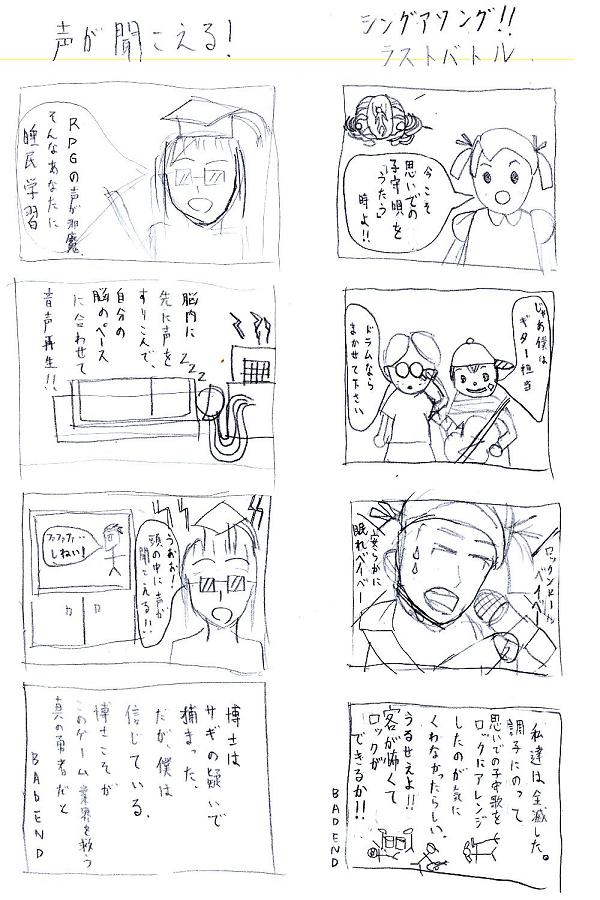 シングアソング!!
ラストバトル
今こそ
思いでの
子守唄を
「うたう」
時よ!!
じゃあ僕は
ギター担当
ドラムなら
まかせて下さい
ロックンロール
ベイベー
安らかに
眠れベイベー
私達は全滅した。
調子にのって
思いでの子守歌を
ロックにアレンジ
したのが気に
くわなかったらしい。
うるせえよ!!
客が怖くて
ロックが
できるか!!
BAD END
声が聞こえる!
RPGの声が邪魔
そんなあなたに
睡民学習
脳内に
先に声を
すりこんで、
自分の
脳のペース
に合わせて
音声再生!!
ZZZ
うおお!
頭の中に声が
聞こえる!!
ファファファ…
しねい!
博士は
サギの疑いで
捕まった
だが、僕は
信じている.
博士こそが
このゲーム業界を救う
真の勇者だと
BAD END